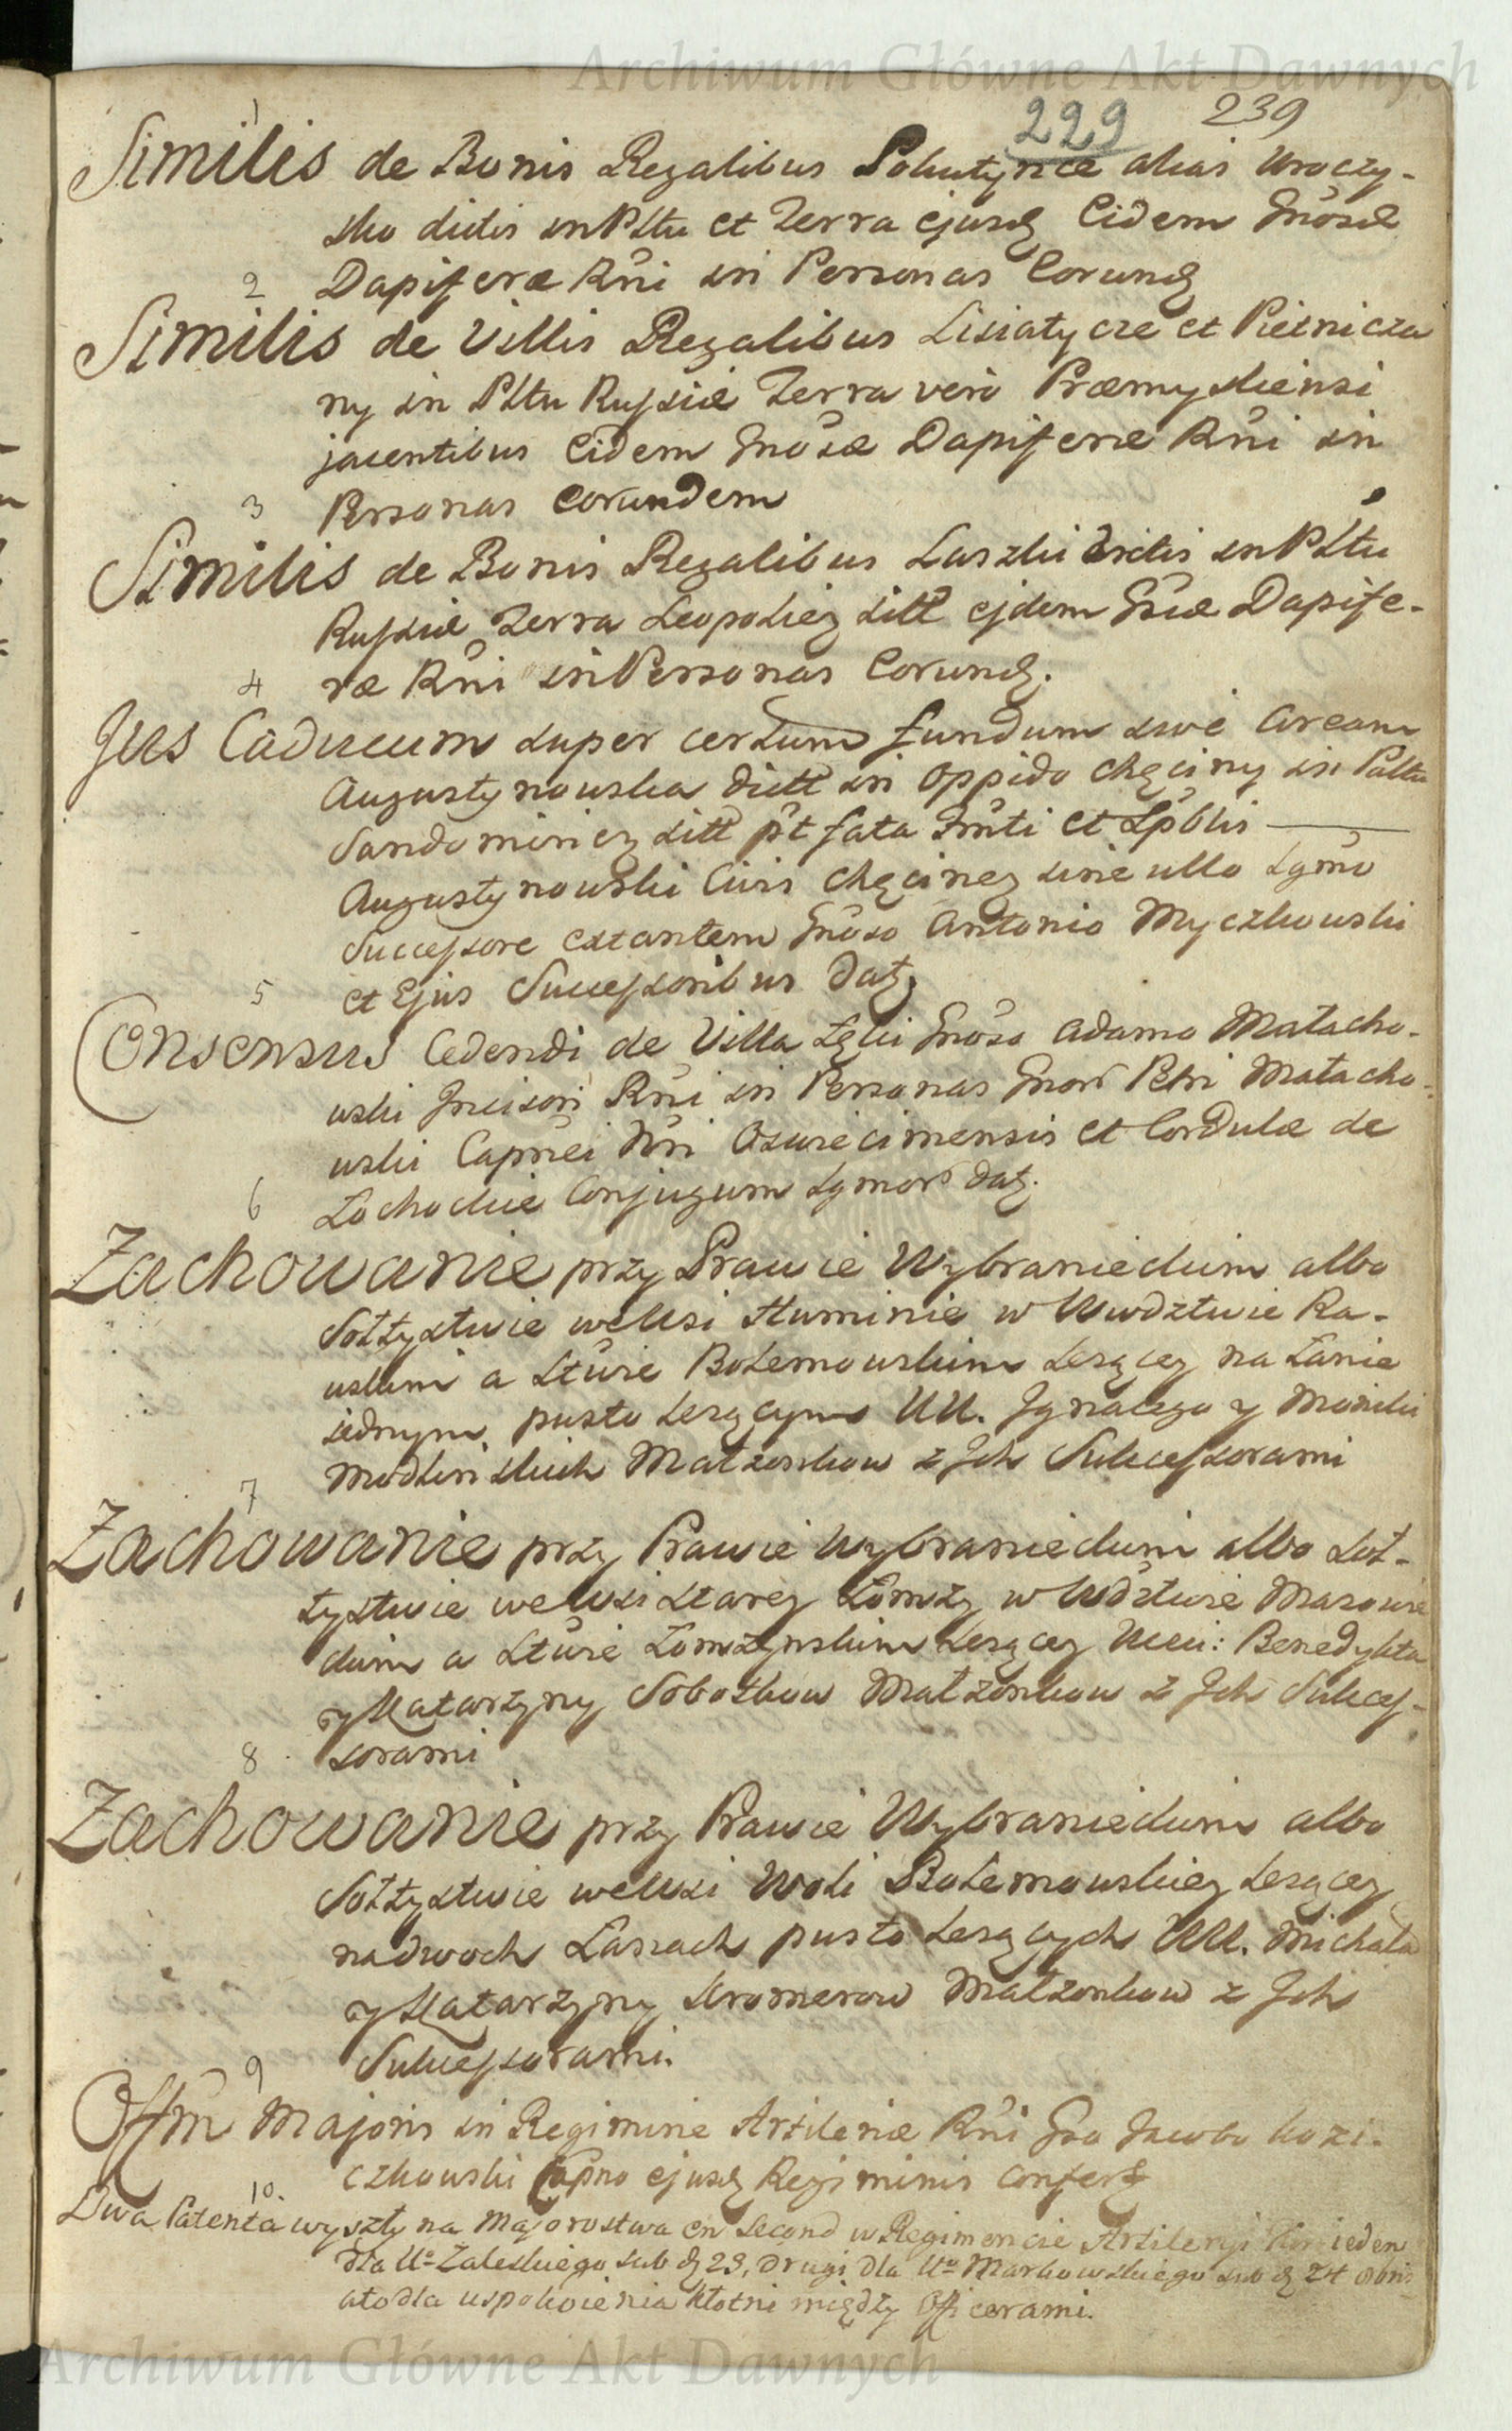 Archiwum Główne Akt Dawnych
229 239
1
Similis de Bonis Regalibus Pohutynce alias Uroczy-
sko dictis in Pltu et Terra ejusd Eidem Gnosæ
Dapiferæ Rni in Personas Eorund
2
Similis de Villis Regalibus Lisiatycze et Pietnicza
ny in Pltu Russiæ Terra vero Præmysliensi
jacentibus Eidem Gnosæ Dapiferæ Rni in
Personas eorundem
3
Similis de Bonis Regalibus Laszki dictis in Pltu
Russiæ Terra Leopolien sitt ejdem Gsæ Dapife-
ræ Rni in Personas Eorund.
4
Jus Caducum super certum fundum sive Aream
Augustynowska dictt in Oppido Chęciny in Paltu
Sandomirien sitt pt fata Fmti et Spblis
Augustynowski Civis Chęcinen sine ullo Lgmo
Successore extantem Gnoso Antonio Myczkowski
et Ejus Successoribus Datt.
5
Consensus Cedendi de Villa Łęki Gnoso Adamo Małacho-
wski Incisori Rni in Personas Gnor Petri Małacho-
wski Capnei Nri Oswiecimensis et Cordulæ de
Łochockie Conjugum Lgmor Datt.
6
Zachowanie przy Prawie Wybranieckim albo
Sołtystwie we Wsi Huminie w Wwdztwie Ra-
wskim a Sttwie Bolemowskim Lezącey na Łanie
iednym pusto Lezącym UU. Ignacego y Moniki
Modlinskich Małzonkow z Ich Sukcessorami
7
Zachowanie przy Prawie Wybranieckim albo Soł-
tystwie we Wsi Starey Łomży w Wdztwie Mazowie
ckim a Sttwie Łomżynskim Lezącey Ucci: Benedykta
y Katarzyny Sobotkow Małzonkow z Ich Sukces-
sorami
8
Zachowanie przy Prawie Wybranieckim albo
Sołtystwie we Wsi Woli Bolemowskiey Lezącey
na dwoch Łanach pusto Lezących UU. Michała
y Katarzyny Kromerow Małzonkow z Ich
Sukcessorami.
9
Offm Majoris in Regimine Artileriæ Rni Gso Jacobo Kozi-
czkowski Capno ejusd Regiminis Confertt
10.
Dwa Patenta wyszły na Majorostwa en Second w Regimencie Artileryi Kor ieden
dla Uo Zaleskiego sub d 23, Drugi dla Uo Markowskiego sub d 24
a to dla uspokoienia Kłotni między Officerami.
Archiwum Główne Akt Dawnych